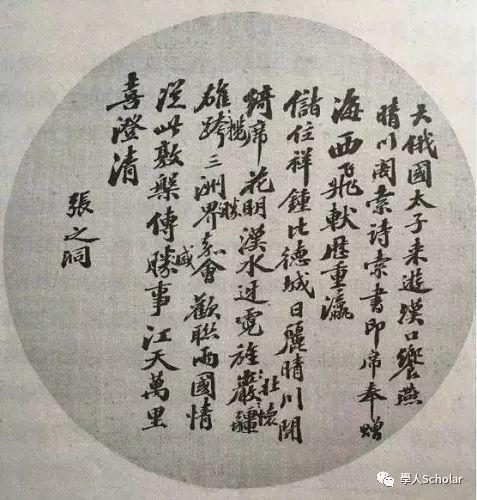 大俄國太子来遊漢口饗燕
晴川阁索詩索書即席奉贈
海西飛軑歷重瀛
儲位祥鍾比德城日麗晴川開
綺席花明漢水迓霓旌嚴疆
壯懷
雄跨三洲界嘉會歡聯兩國情
攬
勝
從此敦槃傳勝事江天萬里
盛
喜澄清
張之洞
學人Scholar